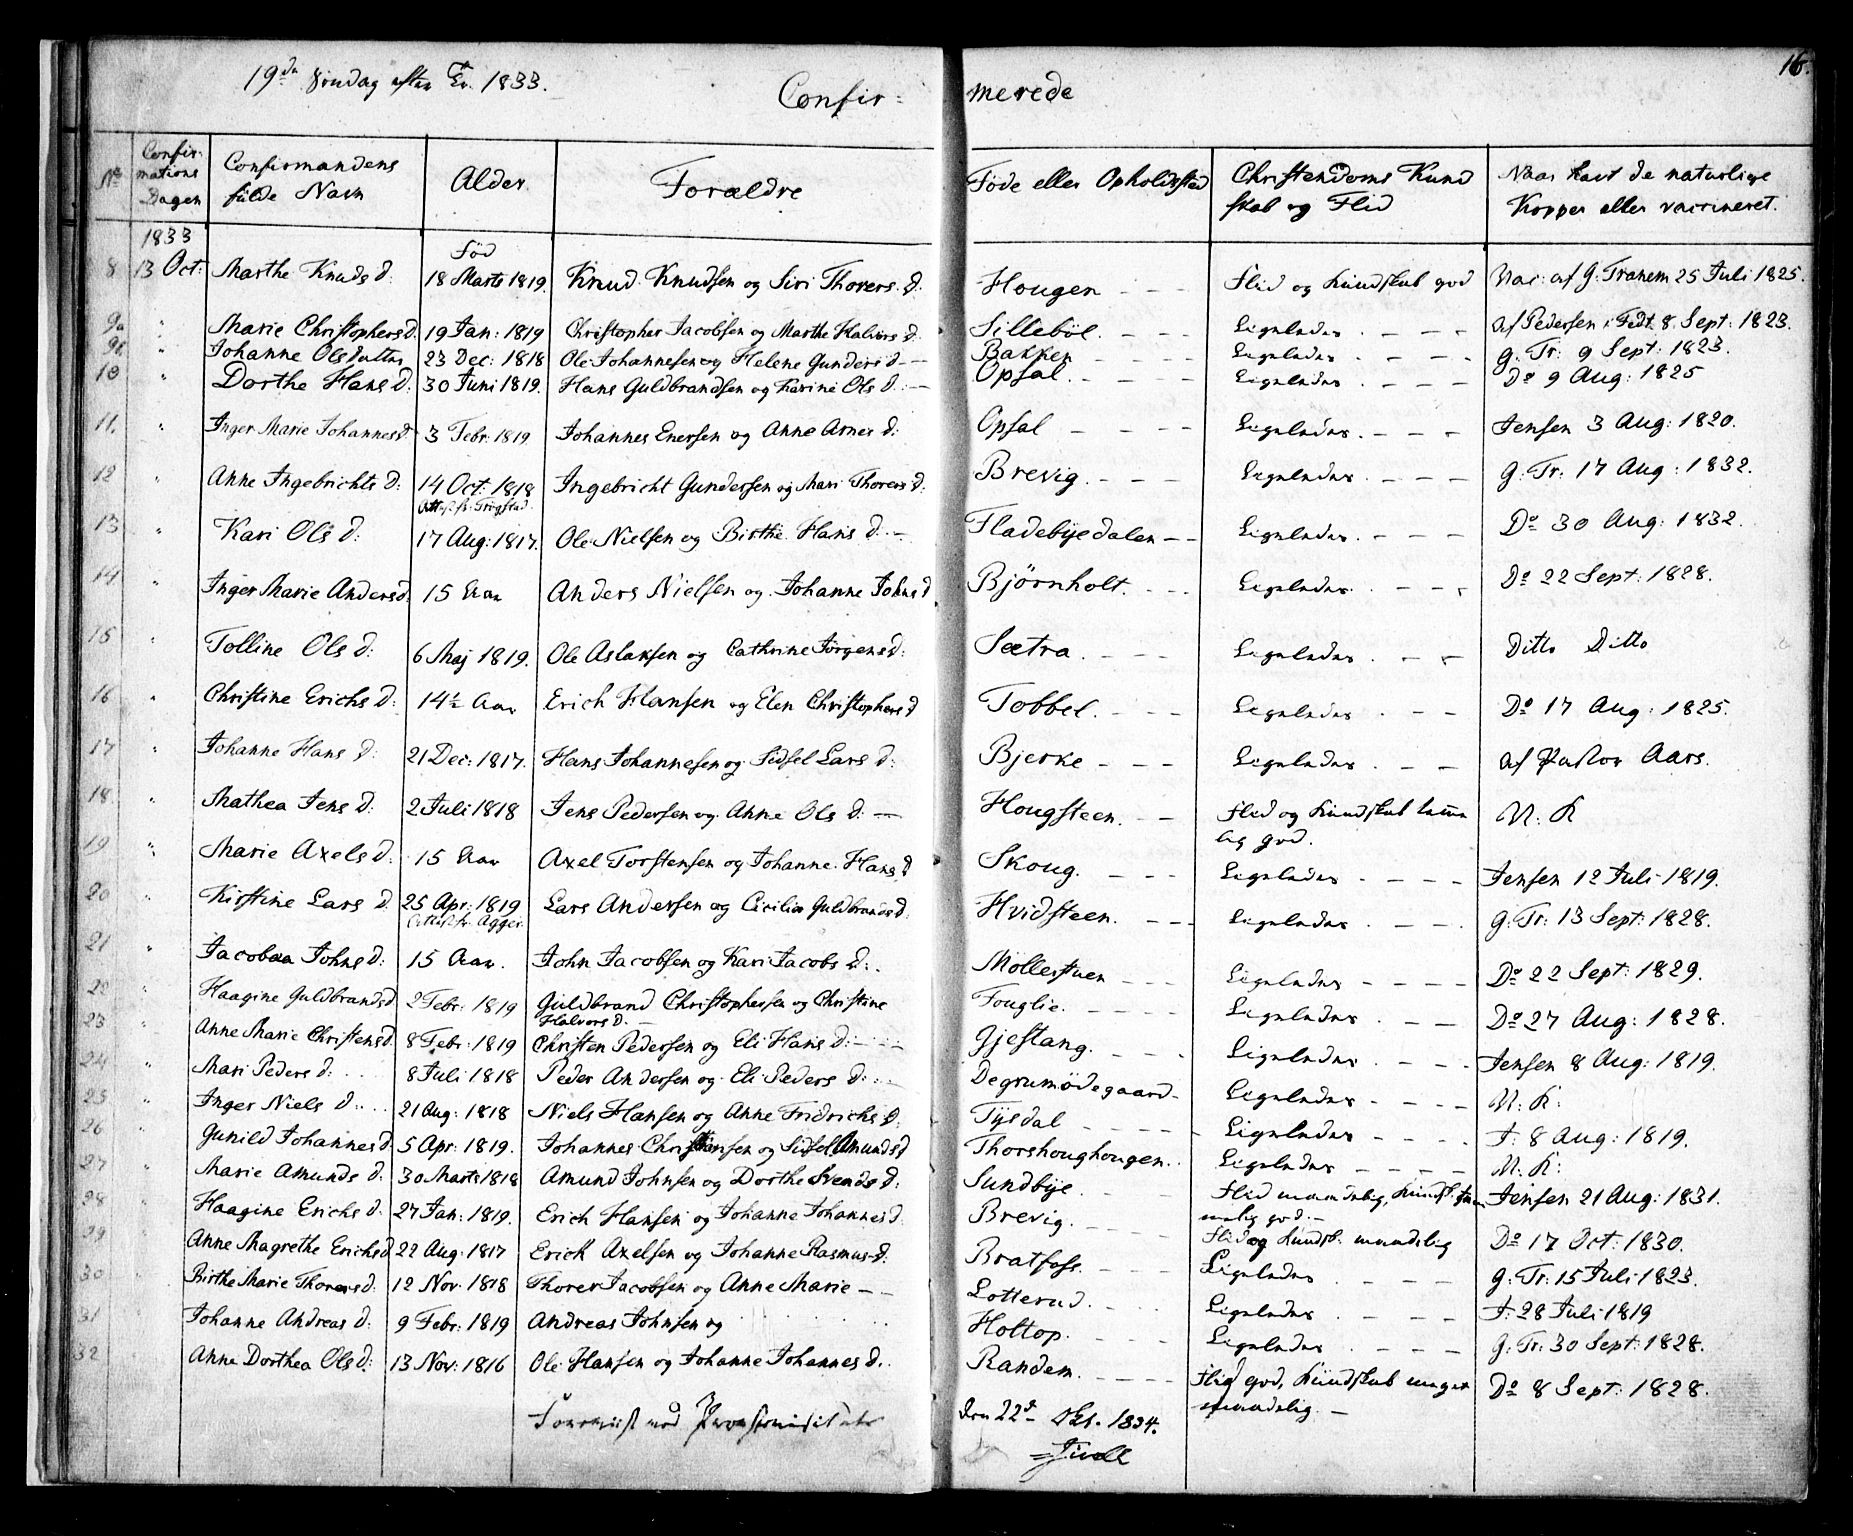 19de Søndag efter Tr. 1833.
Confir= merede
16.
No Confir-mations Dagen Confirmandens fulde Navn Alder Forældre Føde eller Opholdssted Christendoms Kundskab og Flid Naar havt de naturlige Kopper eller vaccineret.
1833 Fød
8 13 Oct: Marthe Knuds d: 18 Marts 1819. Knud Knudsen og Siri Thorers d: Hougen Flid og Kundskab god Vac: af G. Tranem 25 Juli 1825.
9a " Marie Christophers d. 19 Jan: 1819 Christopher Jacobsen og Marthe Halvors d: Sillebøl Ligeledes af Pedersen i Fedt. 8 Sept: 1823.
9b " Johanne Olsdatter 23 Dec: 1818 Ole Johannesen og Helene Gunders d Bakken Ligeledes G. Tr: 9 Sept: 1823.
10 " Dorthe Hans d: 30 Juni 1819. Hans Guldbrandsen og Karine Ols d: Opsal Ligeledes Do 9 Aug: 1825
11. " Inger Marie Johannes d. 3 Febr: 1819 Johannes Enersen og Anne Arnes d: Opsal Ligeledes Jensen 3 Aug: 1820.
12 " Anne Ingebrichts d: 14 Oct: 1818 Ingebricht Gundersen og Mari Thorers d. Brevig Ligeledes G: Tr: 17 Aug: 1832.
Attest fr. Trøgstad.
13 " Kari Ols d: 17 Aug: 1817. Ole Nielsen og Birthe Hans d: Fladebyedalen Ligeledes Do 30 Aug: 1832.
14 " Inger Marie Anders d. 15 Aar Anders Nielsen og Johanne Johns d Bjørnholt. Ligeledes Do 22 Sept: 1828.
15 " Tolline Ols d: 6 Maj 1819. Ole Aslaksen og Cathrine Jørgens d: Sætra Ligeledes Ditto Ditto
16 " Christine Erichs d: 14½ Aar Erich Hansen og Elen Christophers d Tobbel. Ligeledes Do 17 Aug: 1825.
17 " Johanne Hans d: 21 Dec: 1817. Hans Johannesen og Sidsel Lars d: Bjerke Ligeledes af Pastor Aars.
18. " Mathea Jens d. 2 Juli 1818 Jens Pedersen og Anne Ols d: Hougsteen. Flid og Kundskab temme N. K
lig god.
19 " Marie Axels d: 15 Aar Axel Torstensen og Johanne Hans d Skoug. Ligeledes Jensen 12 Juli 1819.
20 " Kirstine Lars d. 25 Apr: 1819 Lars Andersen og Cicilia Guldbrands d: Hvidsteen. Ligeledes G: Tr: 13 Sept: 1828.
Attest fr. Agger.
21 " Jacobaa Johns d: 15 Aar. John Jacobsen og Kari Jacobs d: Mollestuen Ligeledes Do 22 Sept: 1829.
22 " Haagine Guldbrands d. 2 Febr: 1819 Guldbrand Christophersen og Christine Fouglie. Ligeledes Do 27 Aug: 1828.
Halvors d.
23 " Anne Marie Christens d. 8 Febr: 1819 Christen Pedersen og Eli Hans d: Gjestang. Ligeledes Jensen 8 Aug: 1819.
24 " Mari Peders d: 8 Juli 1818 Peder Andersen og Eli Peders d: Degrumødegaard Ligeledes N: K:
25 " Inger Niels d: 21 Aug: 1818 Niels Hansen og Anne Fridrichs d: Tysdal Ligeledes J: 8 Aug: 1819.
26 " Gunild Johannes d 5 Apr: 1819. Johannes Christiansen og Sidsel Amunds d Thorshoughougen. Ligeledes N. K:
27 " Marie Amunds d: 30 Marts 1818 Amund Johnsen og Dorthe Svends d: Sundbye. Flid maadelig, Kundsk. tem Jensen 21 Aug: 1831.
melig god.
28 " Haagine Erichs d. 27 Jan: 1819. Erich Hansen og Johanne Johannes d. Brevig. Flid og Kundsk: maadelig Do 17 Oct: 1830.
29 Anne Magrethe Erichs d 22 Aug: 1817 Erich Axelsen og Johanne Rasmus d: Bratfoss. Ligeledes G: Tr: 15 Juli 1823.
30 Birthe Marie Thorers d: 12 Nov: 1818 Thorer Jacobsen og Anne Marie Lotterud. Ligeledes J: 28 Juli 1819
31 Johanne Andreas d: 9 Febr: 1819 Andreas Johnsen og Holtop. Ligeledes G: Tr: 30 Sept: 1828.
32 Anne Dorthea Ols d: 13 Nov: 1816 Ole Hansen og Johanne Johannes d. Randem. Flid god, Kundskab meget Do 8 Sept: 1828.
maadelig.
den 22d 1834.